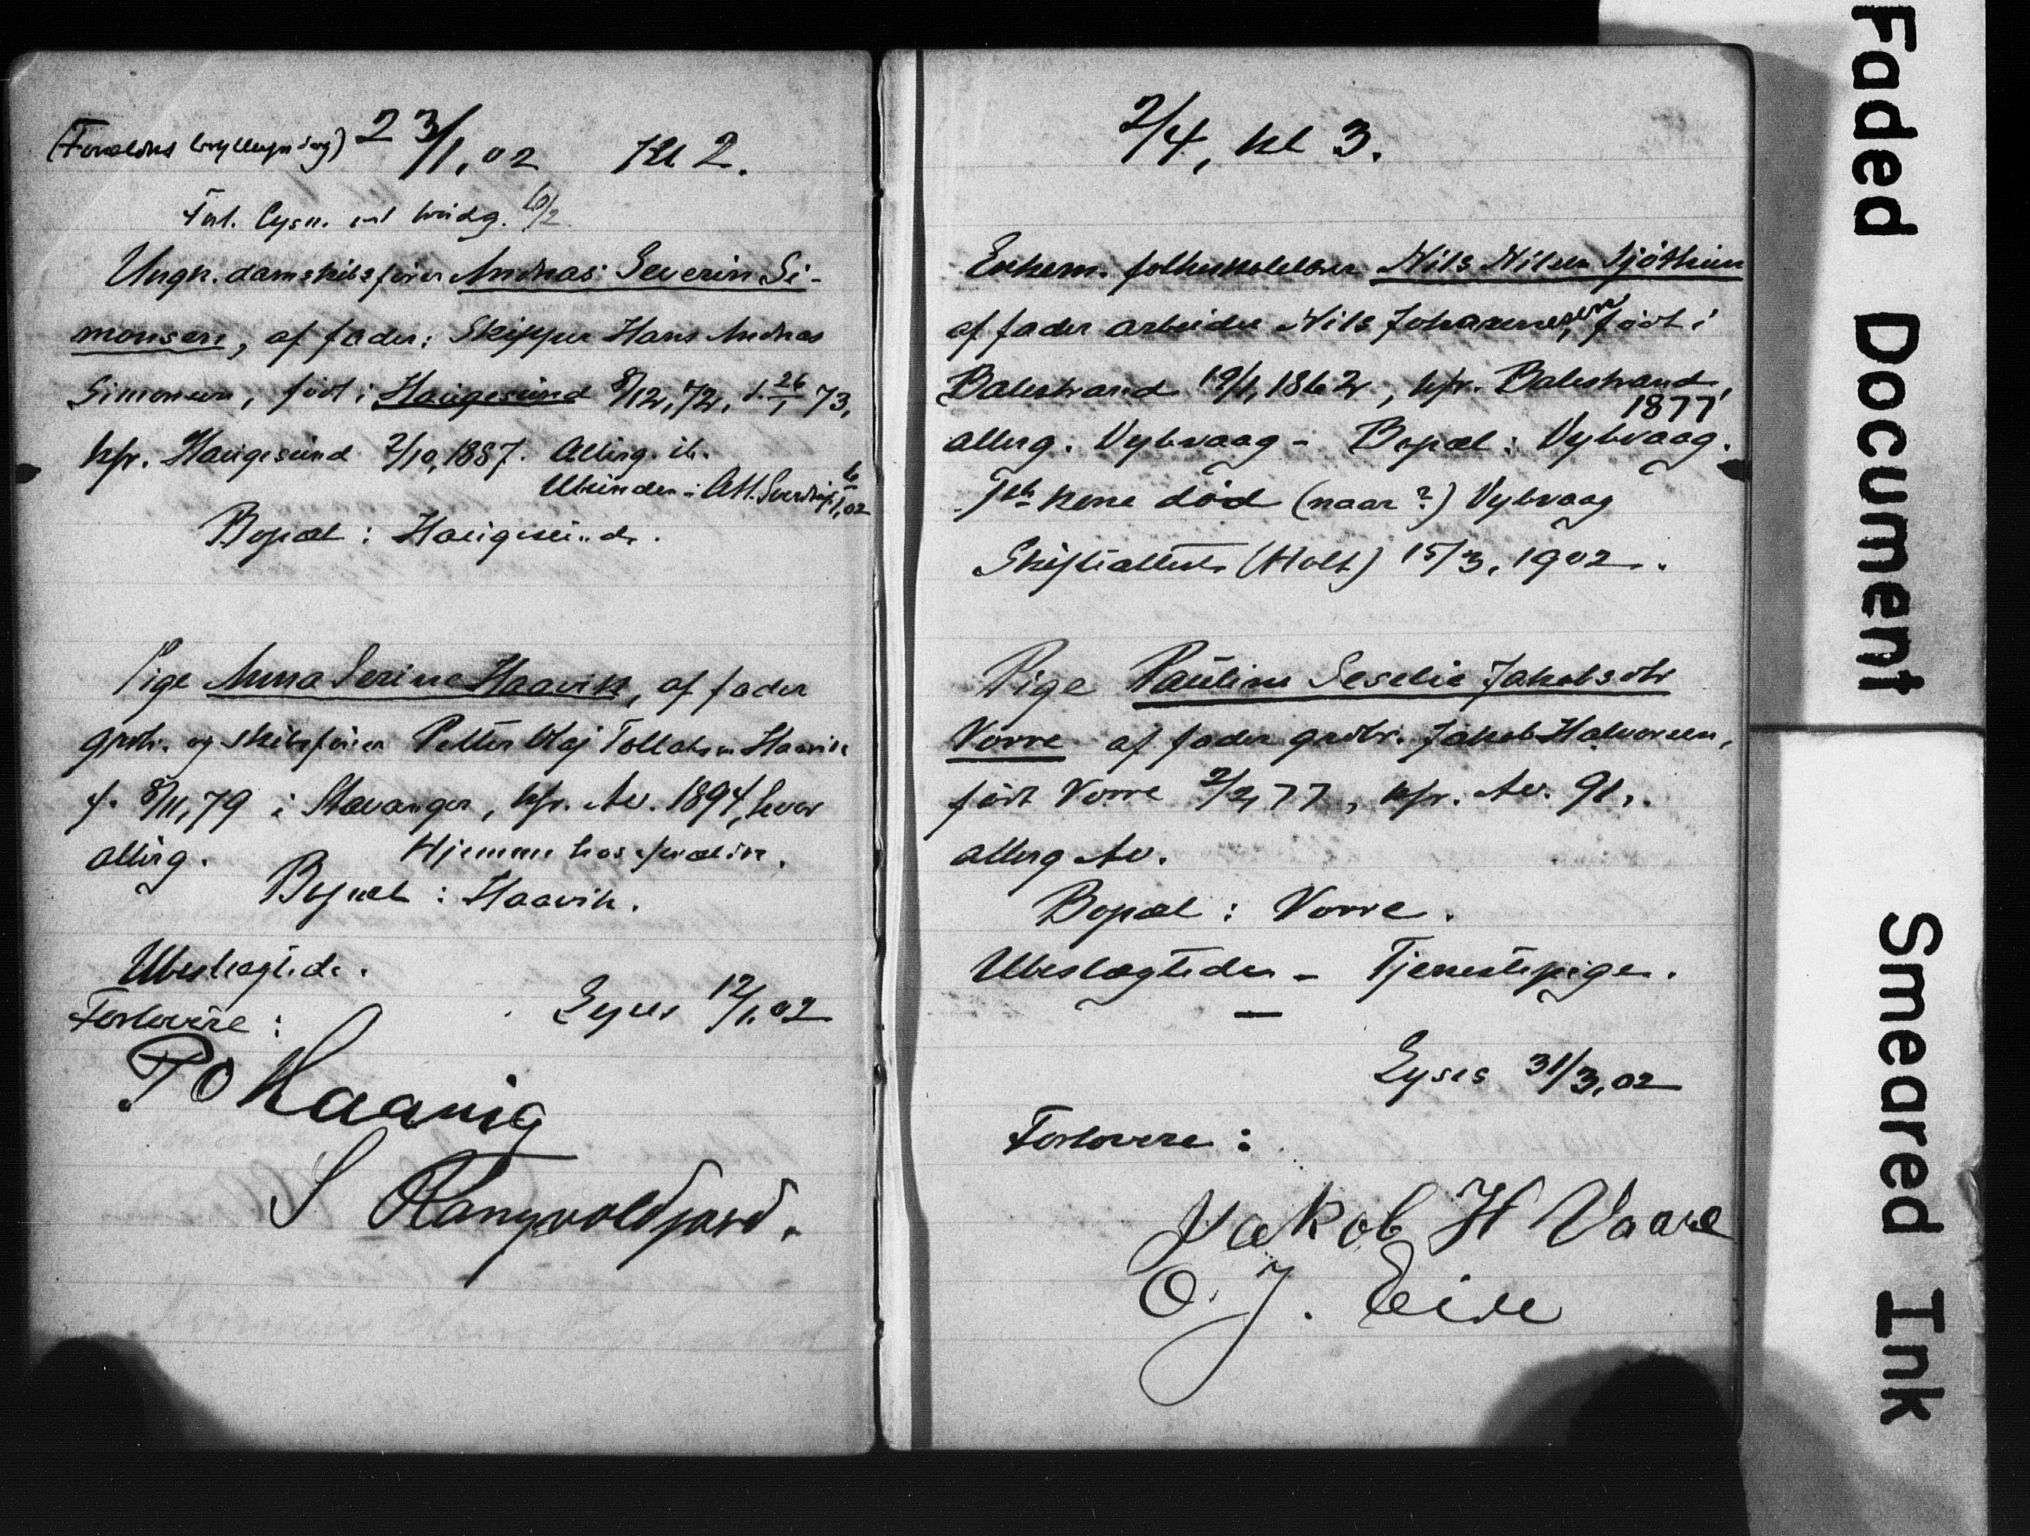 (Forældres bryllupsdag) 23/1, 02 Kl 2.
Forl. Lysn. 6/2
Ungk. damskibsfører Andreas Severin Si-
monsen, af fader: Skipper Hans Andreas
Simonsen, født i Haugesund 8/12, 72, d. 26/1 73,
kfr. Haugesund 2/10, 1887. Altsrg. ib.
Ubunden: Att. 6/1, 02
Bopæl: Haugesund.
Pige Anna Serine Haavik, af fader
grdbr. og skibsfører Petter Olaj Tollaksen Haavik
f. 8/11, 79 i Stavanger, kfr. Av. 1894, hvor
altsrg. Hjemme hos forældre.
Bopæl: Haavik.
Ubeslægtede.
Forlovere: Lyses 12/1. 02
P O Haavig
S Rangvoldjord.
2/4, kl 3.
Enkem. folkeskolelærer Nils Nilsen Sjøthun
af fader arbeider Nils Johannessen, født i
Balestrand 19/1, 1862, kfr. Balestrand, 1877
altsrg. Vybvaag - Bopæl: Vybvaag.
kone død (naar?) Vybvaag
Skifteattest (Holt) 15/3, 1902.
Pige Pauline Seselie Jakobsdtr
Vorre af fader grdbr. Jakob Halvorsen,
født Vorre 2/2, 77, kfr. Av. 91,
altsrg Av.
Bopæl: Vorre.
Ubeslægtede. - Tjenestepige.
Lyses 31/3, 02
Forlovere:
Jakob H Vaare
O. J. Eide
Faded Document
Smeared Ink